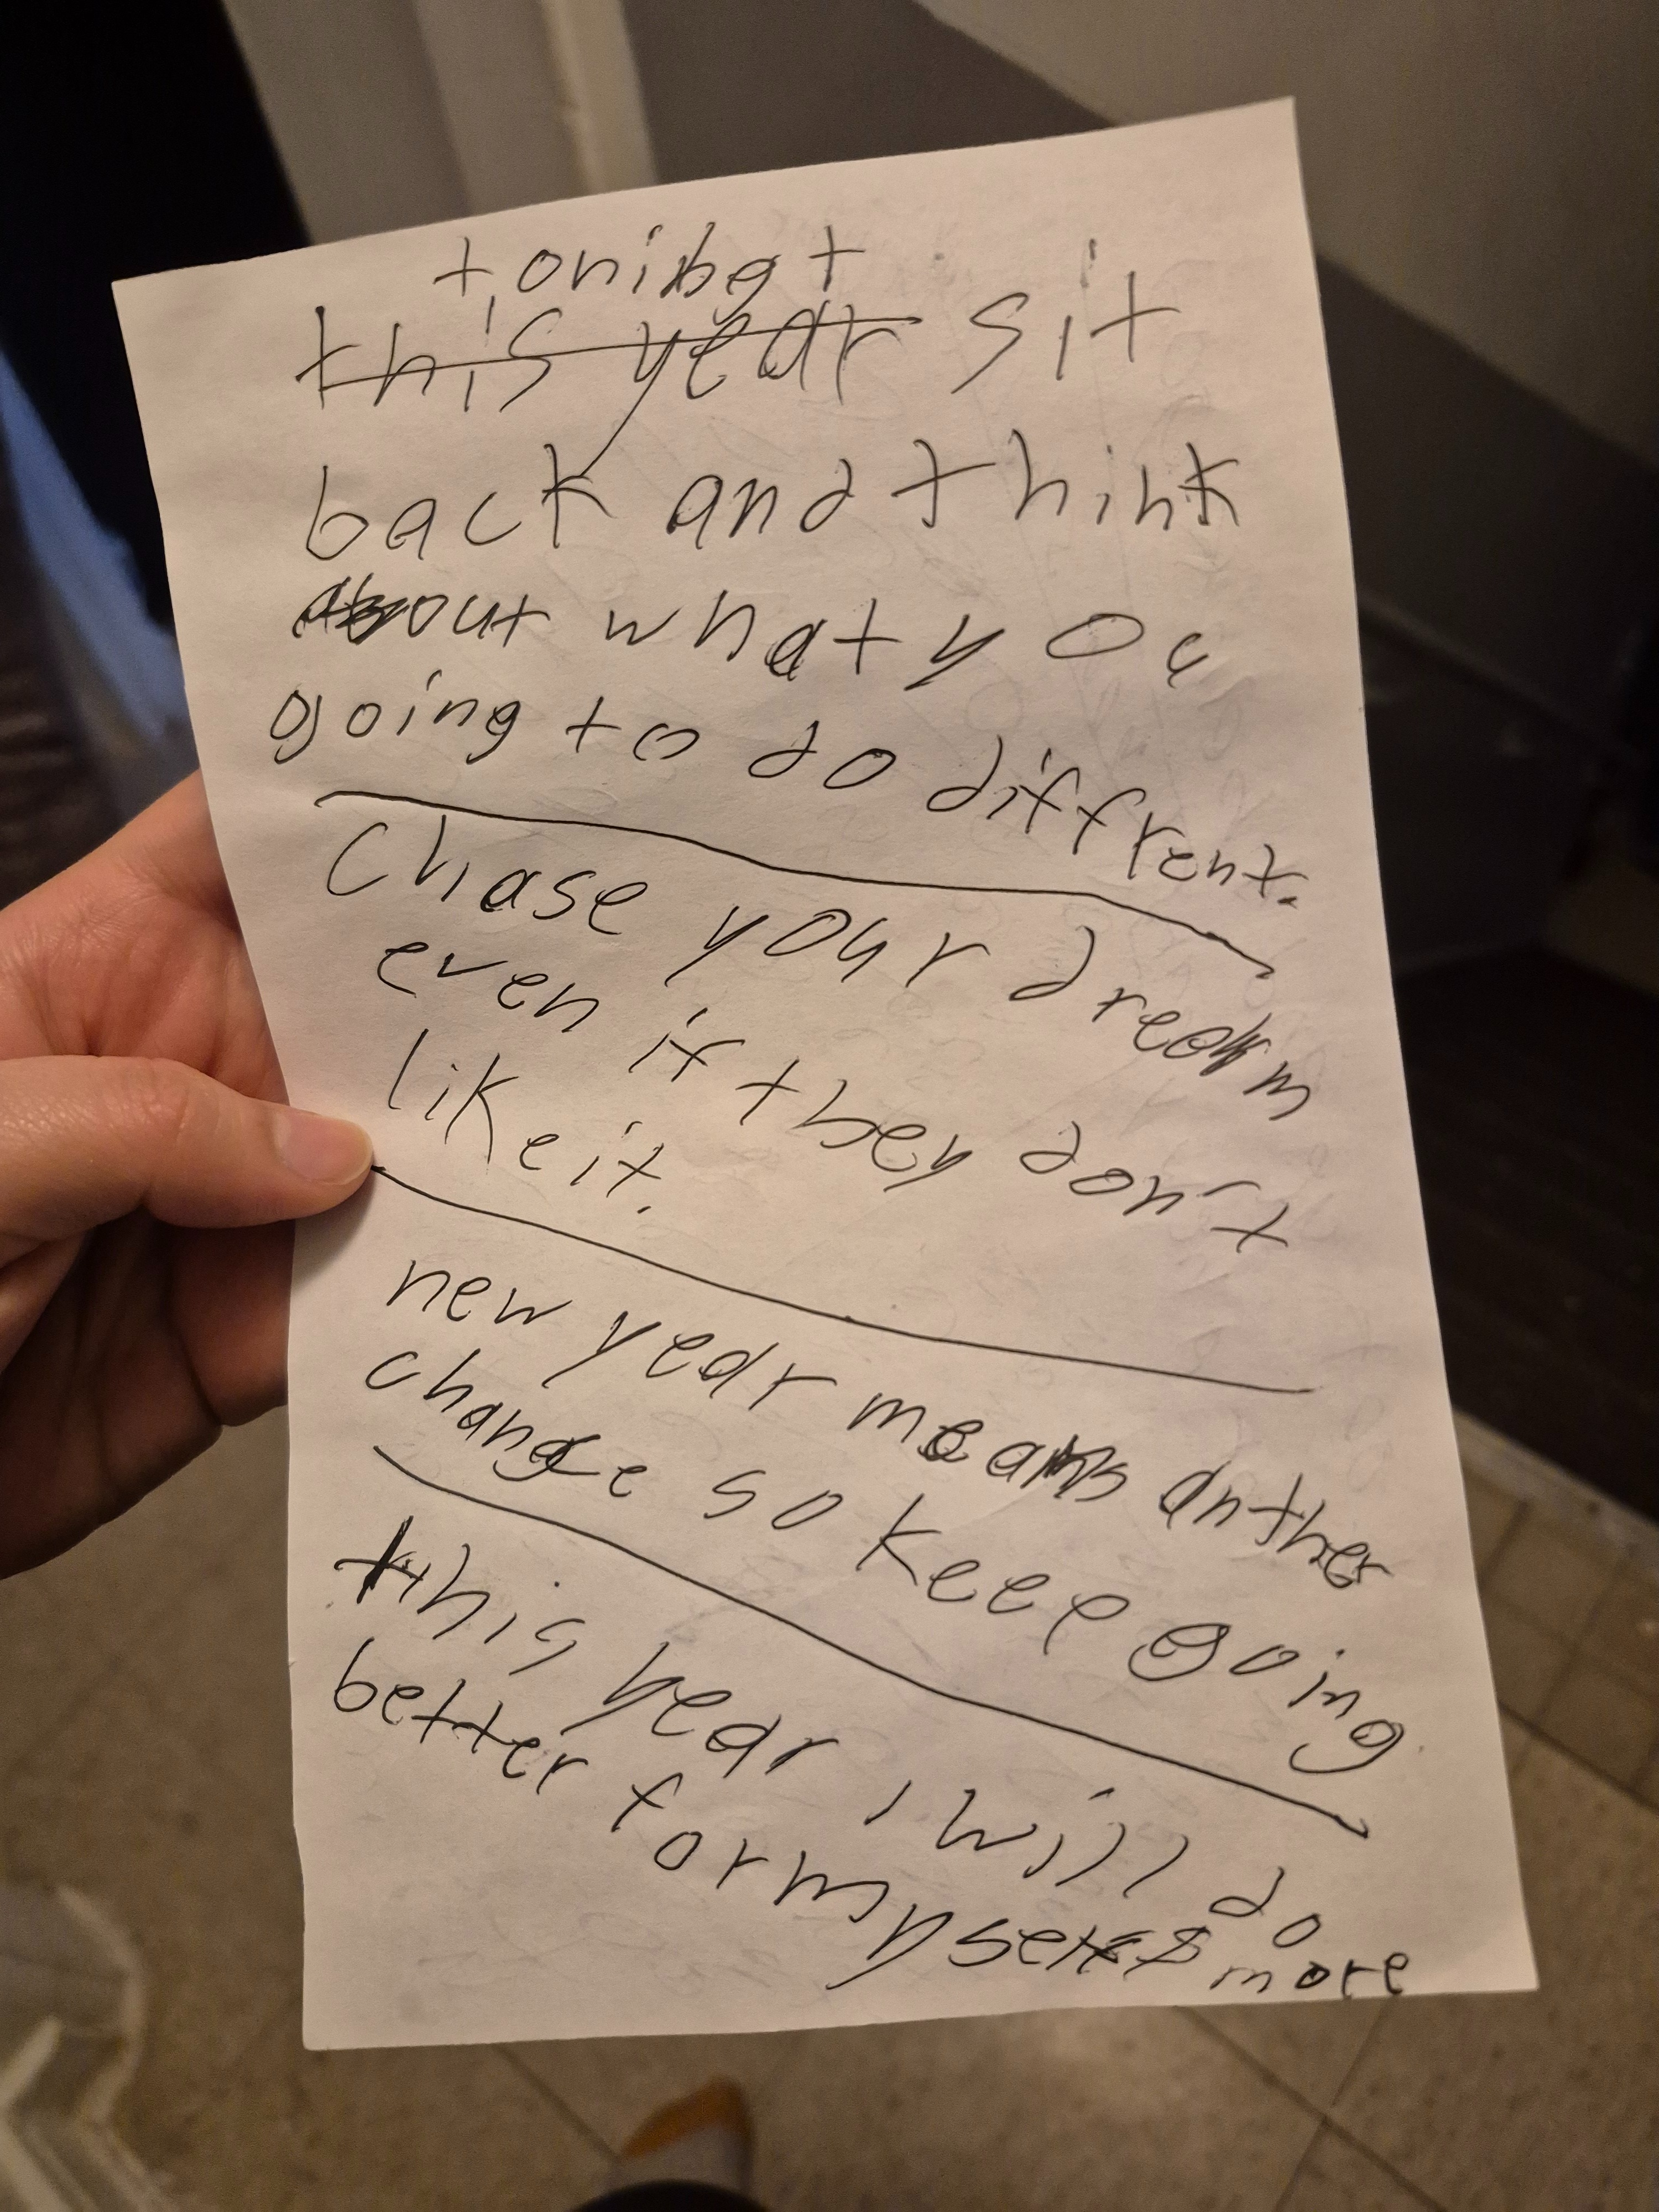 tonight
this year sit
back and think
about what you
going to do diffrent.
Chase your dream
even if they don't
like it.
new year means anther
change so keep going
this year i will do
better for myself more